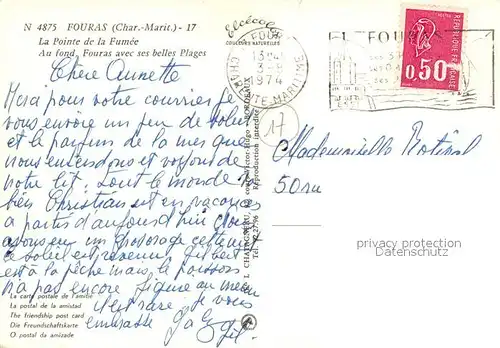 N 4875 FOURAS (Char.-Marit.) - 17
La Pointe de la Fumée
Au fond, Fouras avec ses belles Plages
Chère Annette
Merci pour votre courrier je
vous envoie un peu de soleil
et le parfum de la mer que
nous entendons et voyons de
notre lit. Tout le monde va
bien Christian est en vacances
à partir d'aujourd'hui. Nous
avons eu un gros orage cette nuit
le soleil est revenu. Gilbert
est à la pêche mais le poisson
n'a pas encore figuré au menu
c'est rare. je vous
embrasse
La carte postale de l'amitié
La postal de la amistad
The friendship post card
Die Freundschaftskarte
O postal da amizade
couleurs naturelles
FOURAS
1974
CHARENTE MARITIME
FOURAS
RÉPUBLIQUE FRANÇAISE
0,50
17
Reproduction interdite
Mademoiselle
50 rue
privacy protection
Datenschutz